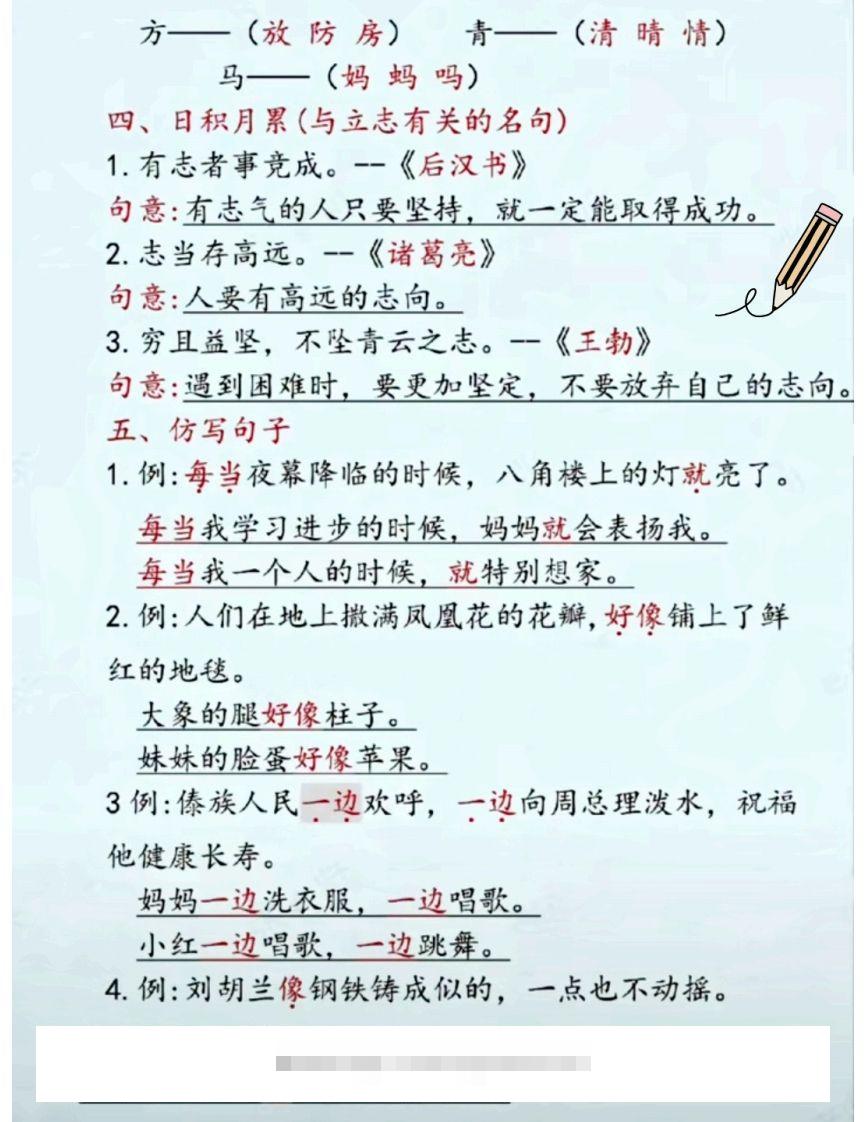 方——（放 防 房） 青——（清 晴 情）
马——（妈 蚂 吗）
四、日积月累(与立志有关的名句)
1.有志者事竞成。--《后汉书》
句意:有志气的人只要坚持，就一定能取得成功。
2.志当存高远。--《诸葛亮》
句意:人要有高远的志向。
3.穷且益坚，不坠青云之志。--《王勃》
句意:遇到困难时，要更加坚定，不要放弃自己的志向。
五、仿写句子
1.例:每当夜幕降临的时候，八角楼上的灯就亮了。
每当我学习进步的时候，妈妈就会表扬我。
每当我一个人的时候，就特别想家。
2.例:人们在地上撒满凤凰花的花瓣,好像铺上了鲜
红的地毯。
大象的腿好像柱子。
妹妹的脸蛋好像苹果。
3例:傣族人民一边欢呼，一边向周总理泼水，祝福
他健康长寿。
妈妈一边洗衣服，一边唱歌。
小红一边唱歌，一边跳舞。
4.例:刘胡兰像钢铁铸成似的，一点也不动摇。